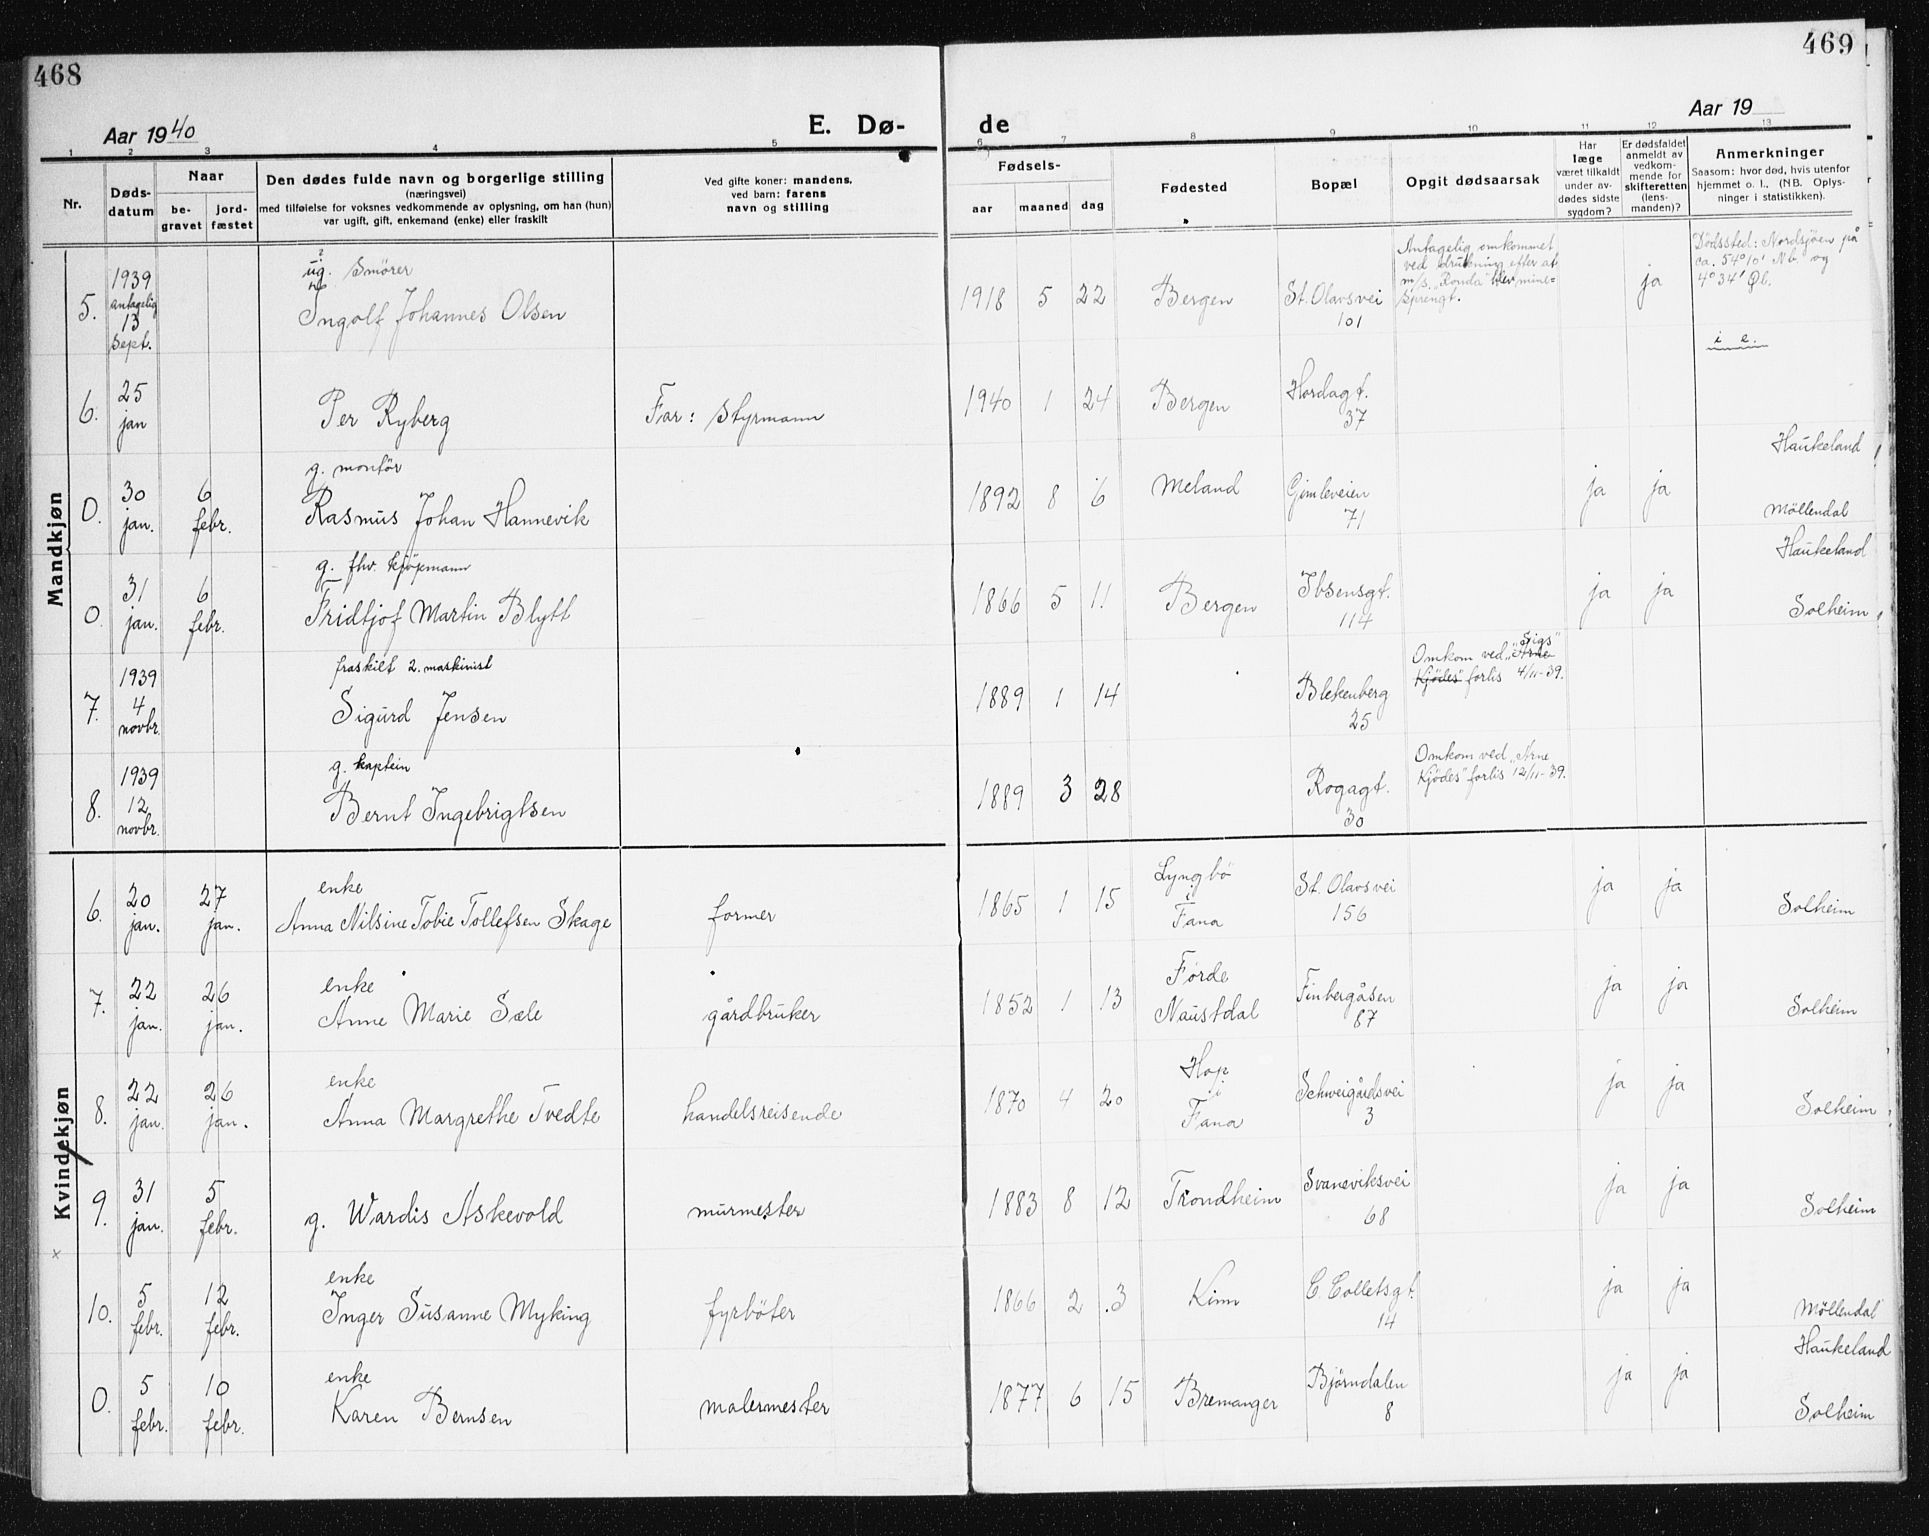 468
Aar 1940
E. Dø-
1 2 3 4 5
Nr.
Døds-
datum
Naar
be-
gravet
jord-
fæstet
Den dødes fulde navn og borgerlige stilling
(næringsvei)
med tilføielse for voksnes vedkommende av oplysning, om han (hun)
var ugift, gift, enkemand (enke) eller fraskilt
Ved gifte koner: mandens,
ved barn: farens
navn og stilling
Mandkjøn
5.
1939
antagelig
13
sept.
ug. Smörer
Ingolf Johannes Olsen
6.
25
jan
Per Ryberg
Far: Styrmann
0.
30
jan.
6
febr.
g. montör
Rasmus Johan Hannevik
0.
31
jan.
6
febr.
g. fhv. kjöpmann
Fridtjof Martin Blytt
7.
1939
4
novbr.
fraskilt 2. maskinist
Sigurd Jensen
8.
1939
12
novbr.
g. kaptein
Bernt Ingebrigtsen
Kvindekjøn
6.
20
jan.
27
jan.
enke
Anna Nilsine Tobie Tollefsen Skage
former
7.
22
jan.
26
jan.
enke
Anne Marie Sæle
gårdbruker
8.
22
jan.
26
jan.
enke
Anna Margrethe Tvedte
handelsreisende
9.
31
jan.
5
febr.
g. Wardis Askevold
murmester
x
10.
5
febr.
12
febr.
enke
Inger Susanne Myking
fyrböter
0.
5
febr.
10
febr.
enke
Karen Bernsen
malermester
469
de
Aar 19
6 7 8 9 10 11 12 13
Fødsels-
aar maaned dag
Fødested
Bopæl
Opgit dødsaarsak
Har
læge
været tilkaldt
under av-
dødes sidste
sygdom?
Er dødsfaldet
anmeldt av
vedkom-
mende for
skifteretten
(lens-
manden)?
Anmerkninger
Saasom: hvor død, hvis utenfor
hjemmet o. l., (NB. Oplys-
ninger i statistikken).
1918 5 22
Bergen
St. Olavsvei
101
Antagelig omkommet
ved drukning efter at
m/s. "Ronda" blev mine-
sprengt.
ja
Dödssted: Nordsjöen på
ca. 54°10' Nb. og
4°34' Øl.
i e.
1940 1 24
Bergen
Hordagt.
37
Haukeland
1892 8 6
Meland
Gimleveien
71
ja ja
Möllendal
Haukeland
1866 5 11
Bergen
Ibsensgt.
114
ja ja
Solheim
1889 1 14
Blekenberg
25
"Sigs"
Omkom ved "Arne
Kjödes" forlis 4/11-39.
1889 3 28
Rogagt.
30
Omkom ved "Arne
Kjödes" forlis 12/11-39.
1865 1 15
Lyngbö
i
Fana
St. Olavsvei
156
ja ja
Solheim
1852 1 13
Førde
Naustdal
Finbergåsen
87
ja ja
Solheim
1870 4 20
Hop
i
Fana
Schweigårdsvei
3
ja ja
Solheim
1883 8 12
Trondheim
Svaneviksvei
68
ja ja
Solheim
1866 2 3
Kinn
C. Colletsgt.
14
ja ja
Möllendal
Haukeland
1877 6 15
Bremanger
Björndalen
8
ja ja
Solheim